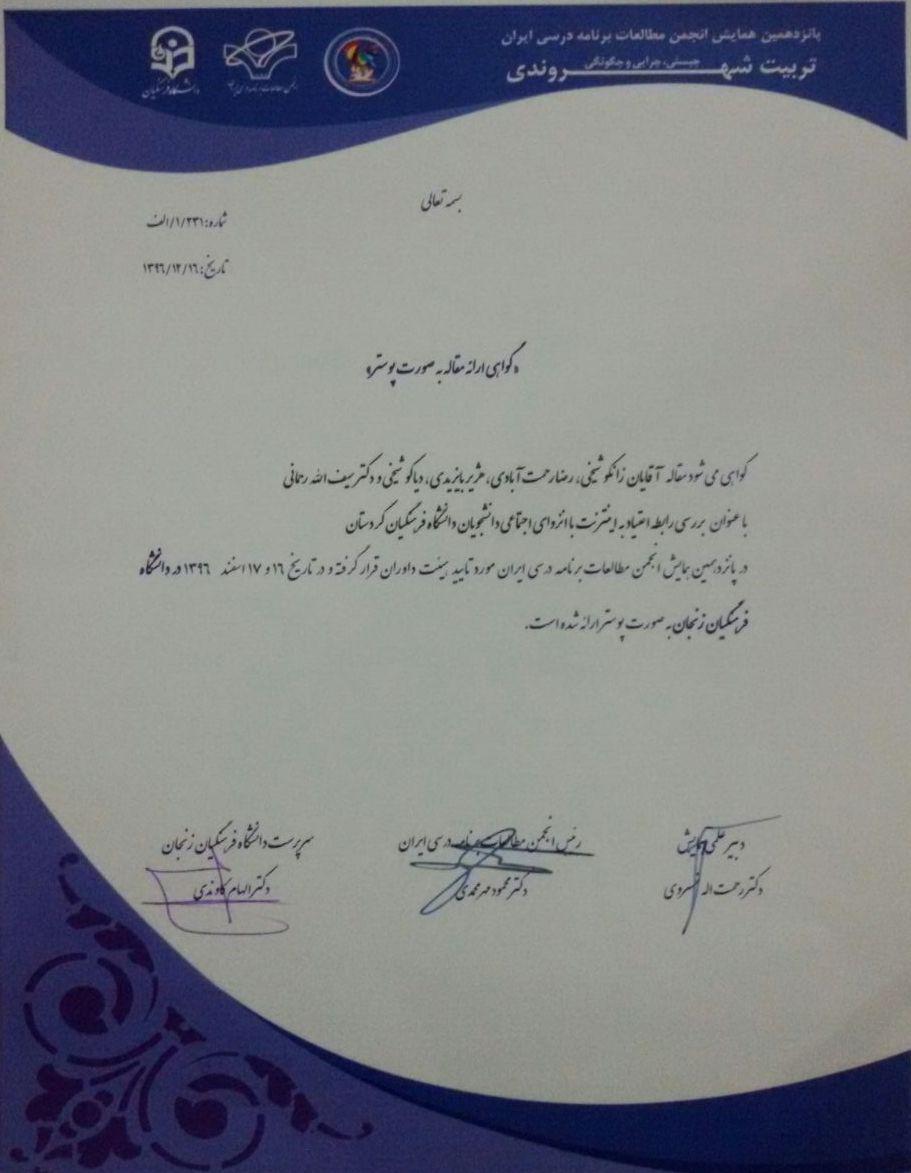 پانزدهمین همایش انجمن مطالعات برنامه درسی ایران
تربیت شهروندی
چیستی، چرایی و چگونگی
انجمن مطالعات برنامه درسی ایران
دانشگاه فرهنگیان
بسمه تعالی
شماره: ۱/۲۳۱/الف
تاریخ: ۱۳۹۶/۱۲/۱۶
«گواهی ارائه مقاله به صورت پوستر»
گواهی می شود مقاله آقایان زانکو شیخی، رضا رحمت آبادی، هژیر بایزیدی، دیاکو شیخی و دکتر سیف الله رحمانی
با عنوان بررسی رابطه اعتیاد به اینترنت با انزوای اجتماعی دانشجویان دانشگاه فرهنگیان کردستان
در پانزدهمین همایش انجمن مطالعات برنامه درسی ایران مورد تایید هیئت داوران قرار گرفته و در تاریخ ۱۶ و ۱۷ اسفند ۱۳۹۶ در دانشگاه
فرهنگیان زنجان به صورت پوستر ارائه شده است.
دبیر علمی همایش
دکتر رحمت اله خسروی
رئیس انجمن مطالعات برنامه درسی ایران
دکتر محمود مهرمحمدی
سرپرست دانشگاه فرهنگیان زنجان
دکتر الهام کاوندی